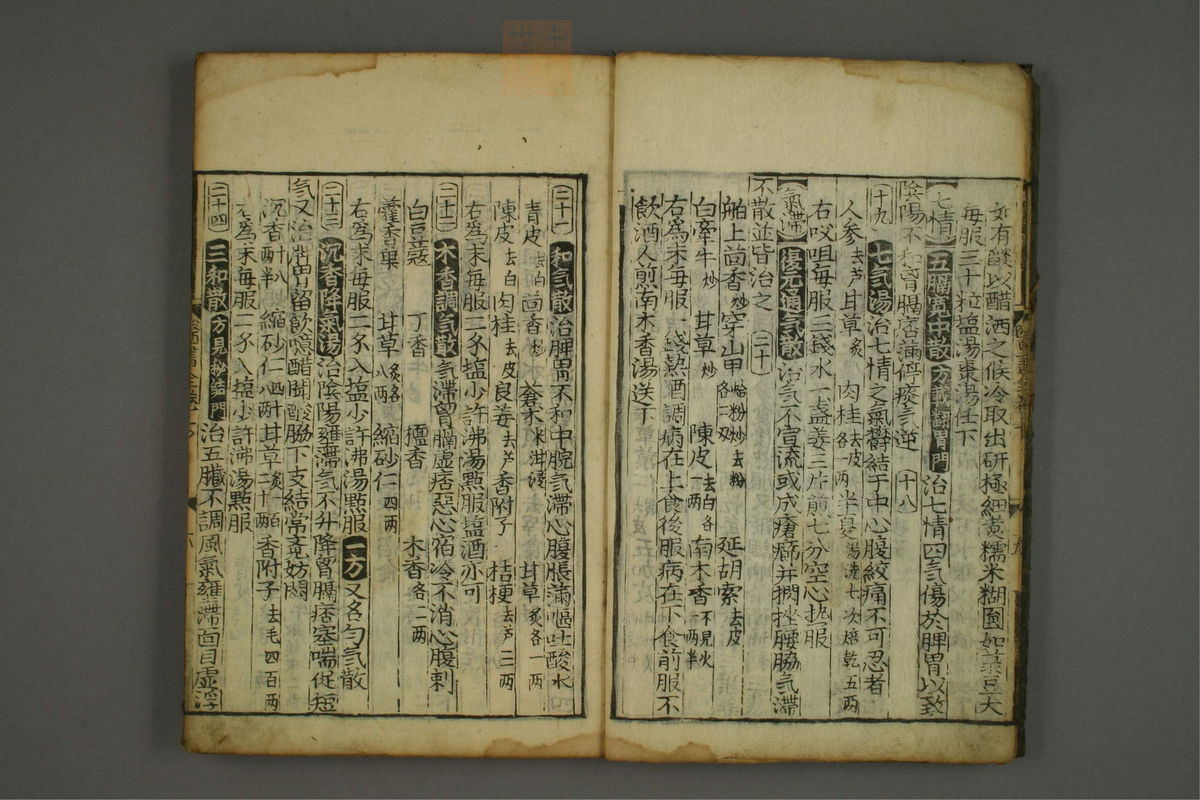 如有酸以醋洒之候冷取出研極細煑糯米糊圎如菉豆大
每服三十粒塩湯棗湯任下
七情 五膈寬中散 方 胃門 治七情四气傷於脾胃以致
陰陽不和胷膈痞滿停痰气逆 十八
十九 七气湯 治七情之氣欝結于中心腹絞痛不可忍者
人参 去芦 甘草 炙 肉桂 去皮各一两 半夏 湯洗七次焙乾五两
右㕮咀每服三錢水一盞姜三片煎七分空心热服
氣滯 復元通气散 治气不宣流或成瘡癤并挫腰脇气滯
不散並皆治之 二十
舶上茴香 炒 穿山甲 蛤粉炒去粉各二两 延胡索 去皮
白牽牛 炒 甘草 炒 陳皮 去白各一两 南木香 不見火一两半
右為末每服一錢熱酒調病在上食後服病在下食前服不
飲酒人煎南木香湯送下
二十一 和气散 治脾胃不和中脘气滯心腹脹滿嘔吐酸水
青皮 去白 茴香 炒 蒼术 米泔浸 甘草 炙各一两
陳皮 去白 肉桂 去皮 良姜 去芦 香附子 桔梗 去芦二两
右為末每服二戔塩少許沸湯點服塩酒亦可
二十二 木香調气散 气滯胷膈虛痞惡心宿冷不消心腹刺
白豆蔻 丁香 檀香 木香 各二两
藿香葉 甘草 炙各八两 縮砂仁 四两
右為末每服二戔入塩少許沸湯點服 一方 又名勻气散
二十三 沉香降氣湯 治陰陽壅滯气不升降胷膈痞塞喘促短
气又治脾胃留飲噫醋聞酸脇下支結常覚妨悶
沉香 十八两半 縮砂仁 四十八两 甘草 炙一百二十两 香附子 去毛四百两
右為末每服二戔入塩少許沸湯點服
二十四 三和散 方見秘結門 治五臓不調風氣壅滯面目虛浮